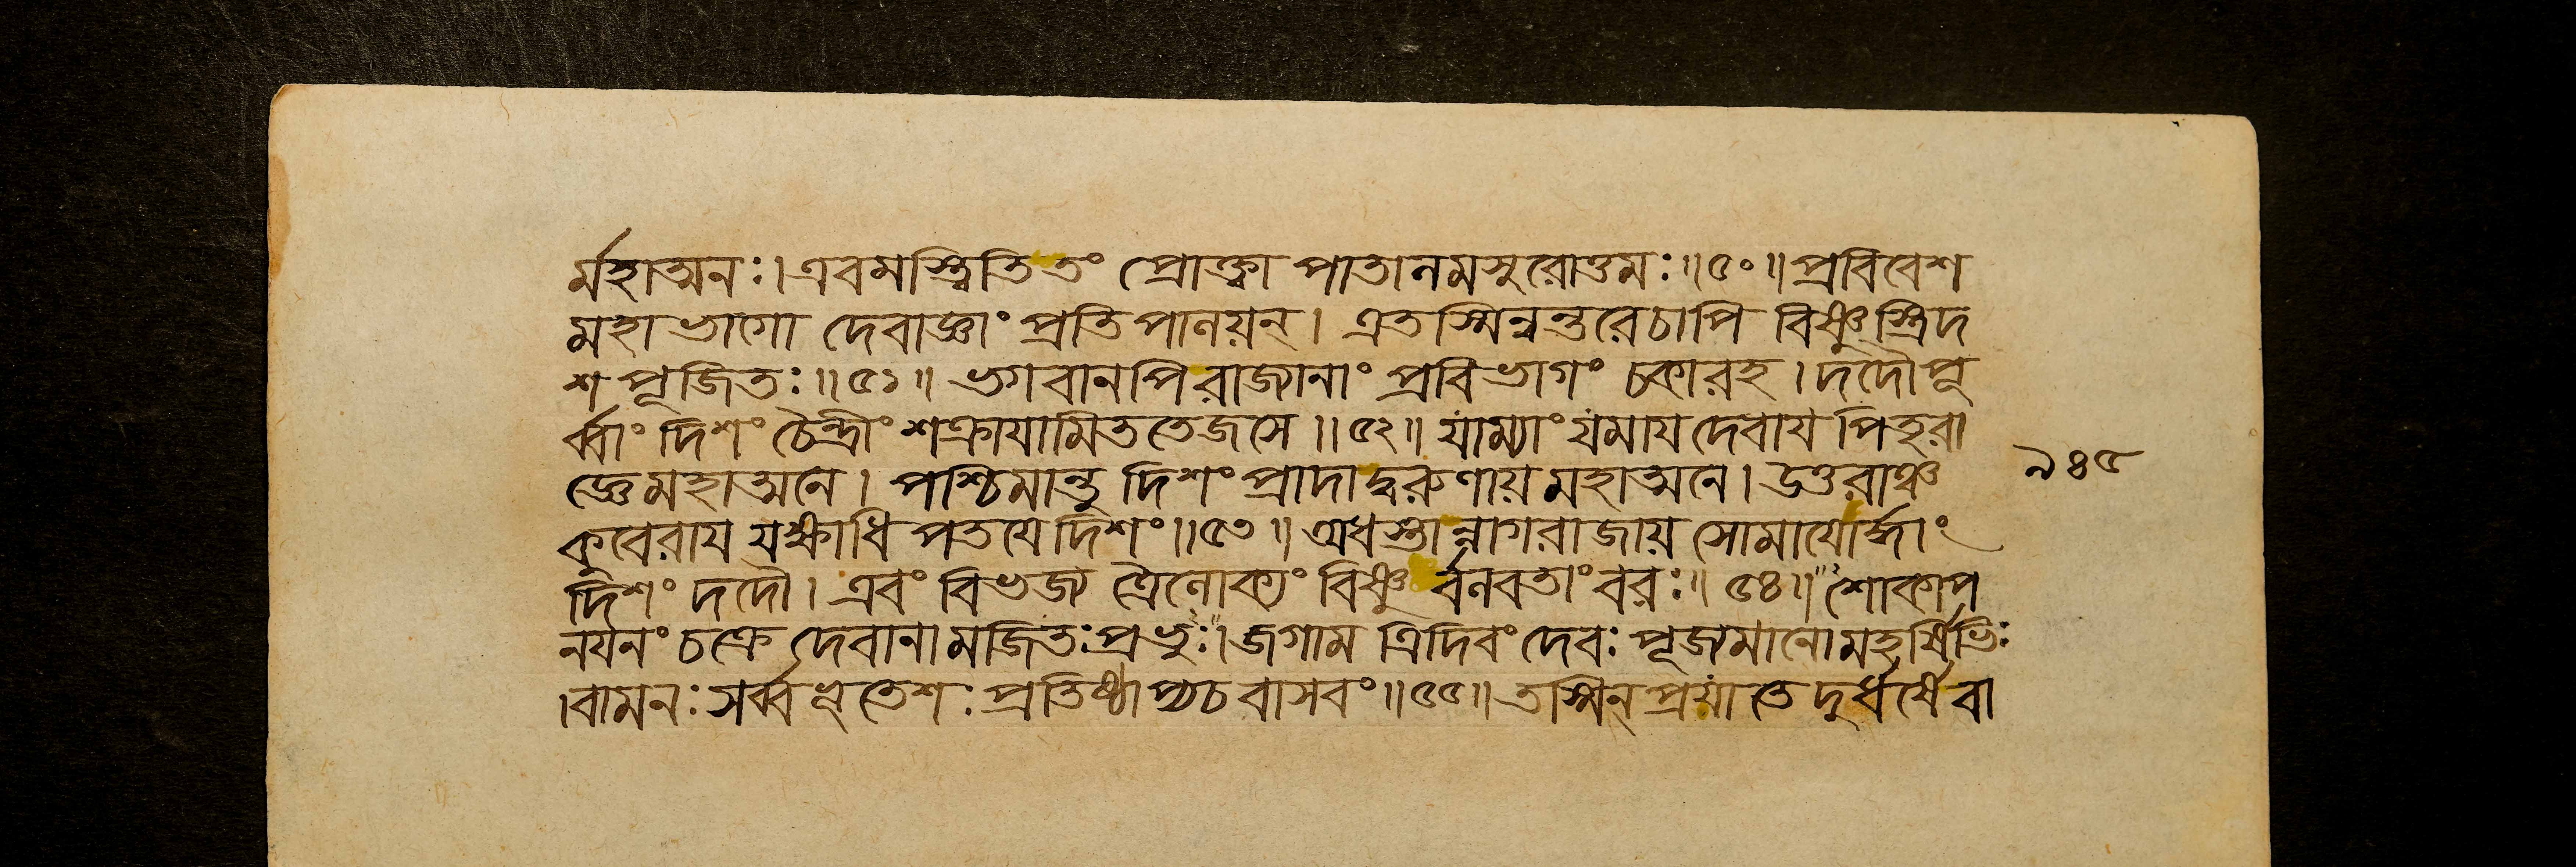 র্মহাত্মনঃ।এবমস্ত্বিতিতং প্রোক্ত্বা পাতালমসুরোত্তমঃ॥৫০॥প্রবিবেশ
মহাভাগো দেবাজ্ঞাং প্রতিপালয়ন্। এতস্মিন্নন্তরেচাপি বিষ্ণুস্ত্রিদ
শপূজিতঃ॥৫১॥ ভগবানপিরাজ্যানাং প্রবিভাগং চকারহ।দদৌপূ
র্ব্বাং দিশং চৈন্দ্রীং শক্রাযামিততেজসে॥৫২॥ যাম্যাং যমায দেবায পিতৃরা
জ্ঞেমহাত্মনে। পশ্চিমান্তু দিশং প্রাদাদ্বরুণায়মহাত্মনে।উত্তরাঞ্চ
৯৪৫
কুবেরায যক্ষাধিপতযেদিশং॥৫৩॥অধস্তান্নাগরাজায় সোমাযোর্দ্ধাং
দিশং দদৌ।এবং বিভজ্য ত্রৈলোক্যং বিষ্ণু র্বলবতাংবরঃ॥৫৪॥শোকাপ
নযনং চক্রে দেবানামজিতঃপ্রভুঃ।জগাম ত্রিদিবং দেবঃ পূজ্যমানোমহর্ষিভিঃ
।বামনঃ সর্ব্বভূতেশঃ প্রতিষ্ঠাপ্যচবাসবং॥৫৫॥তস্মিন্ প্রয়াতে দুর্ধর্ষেবা